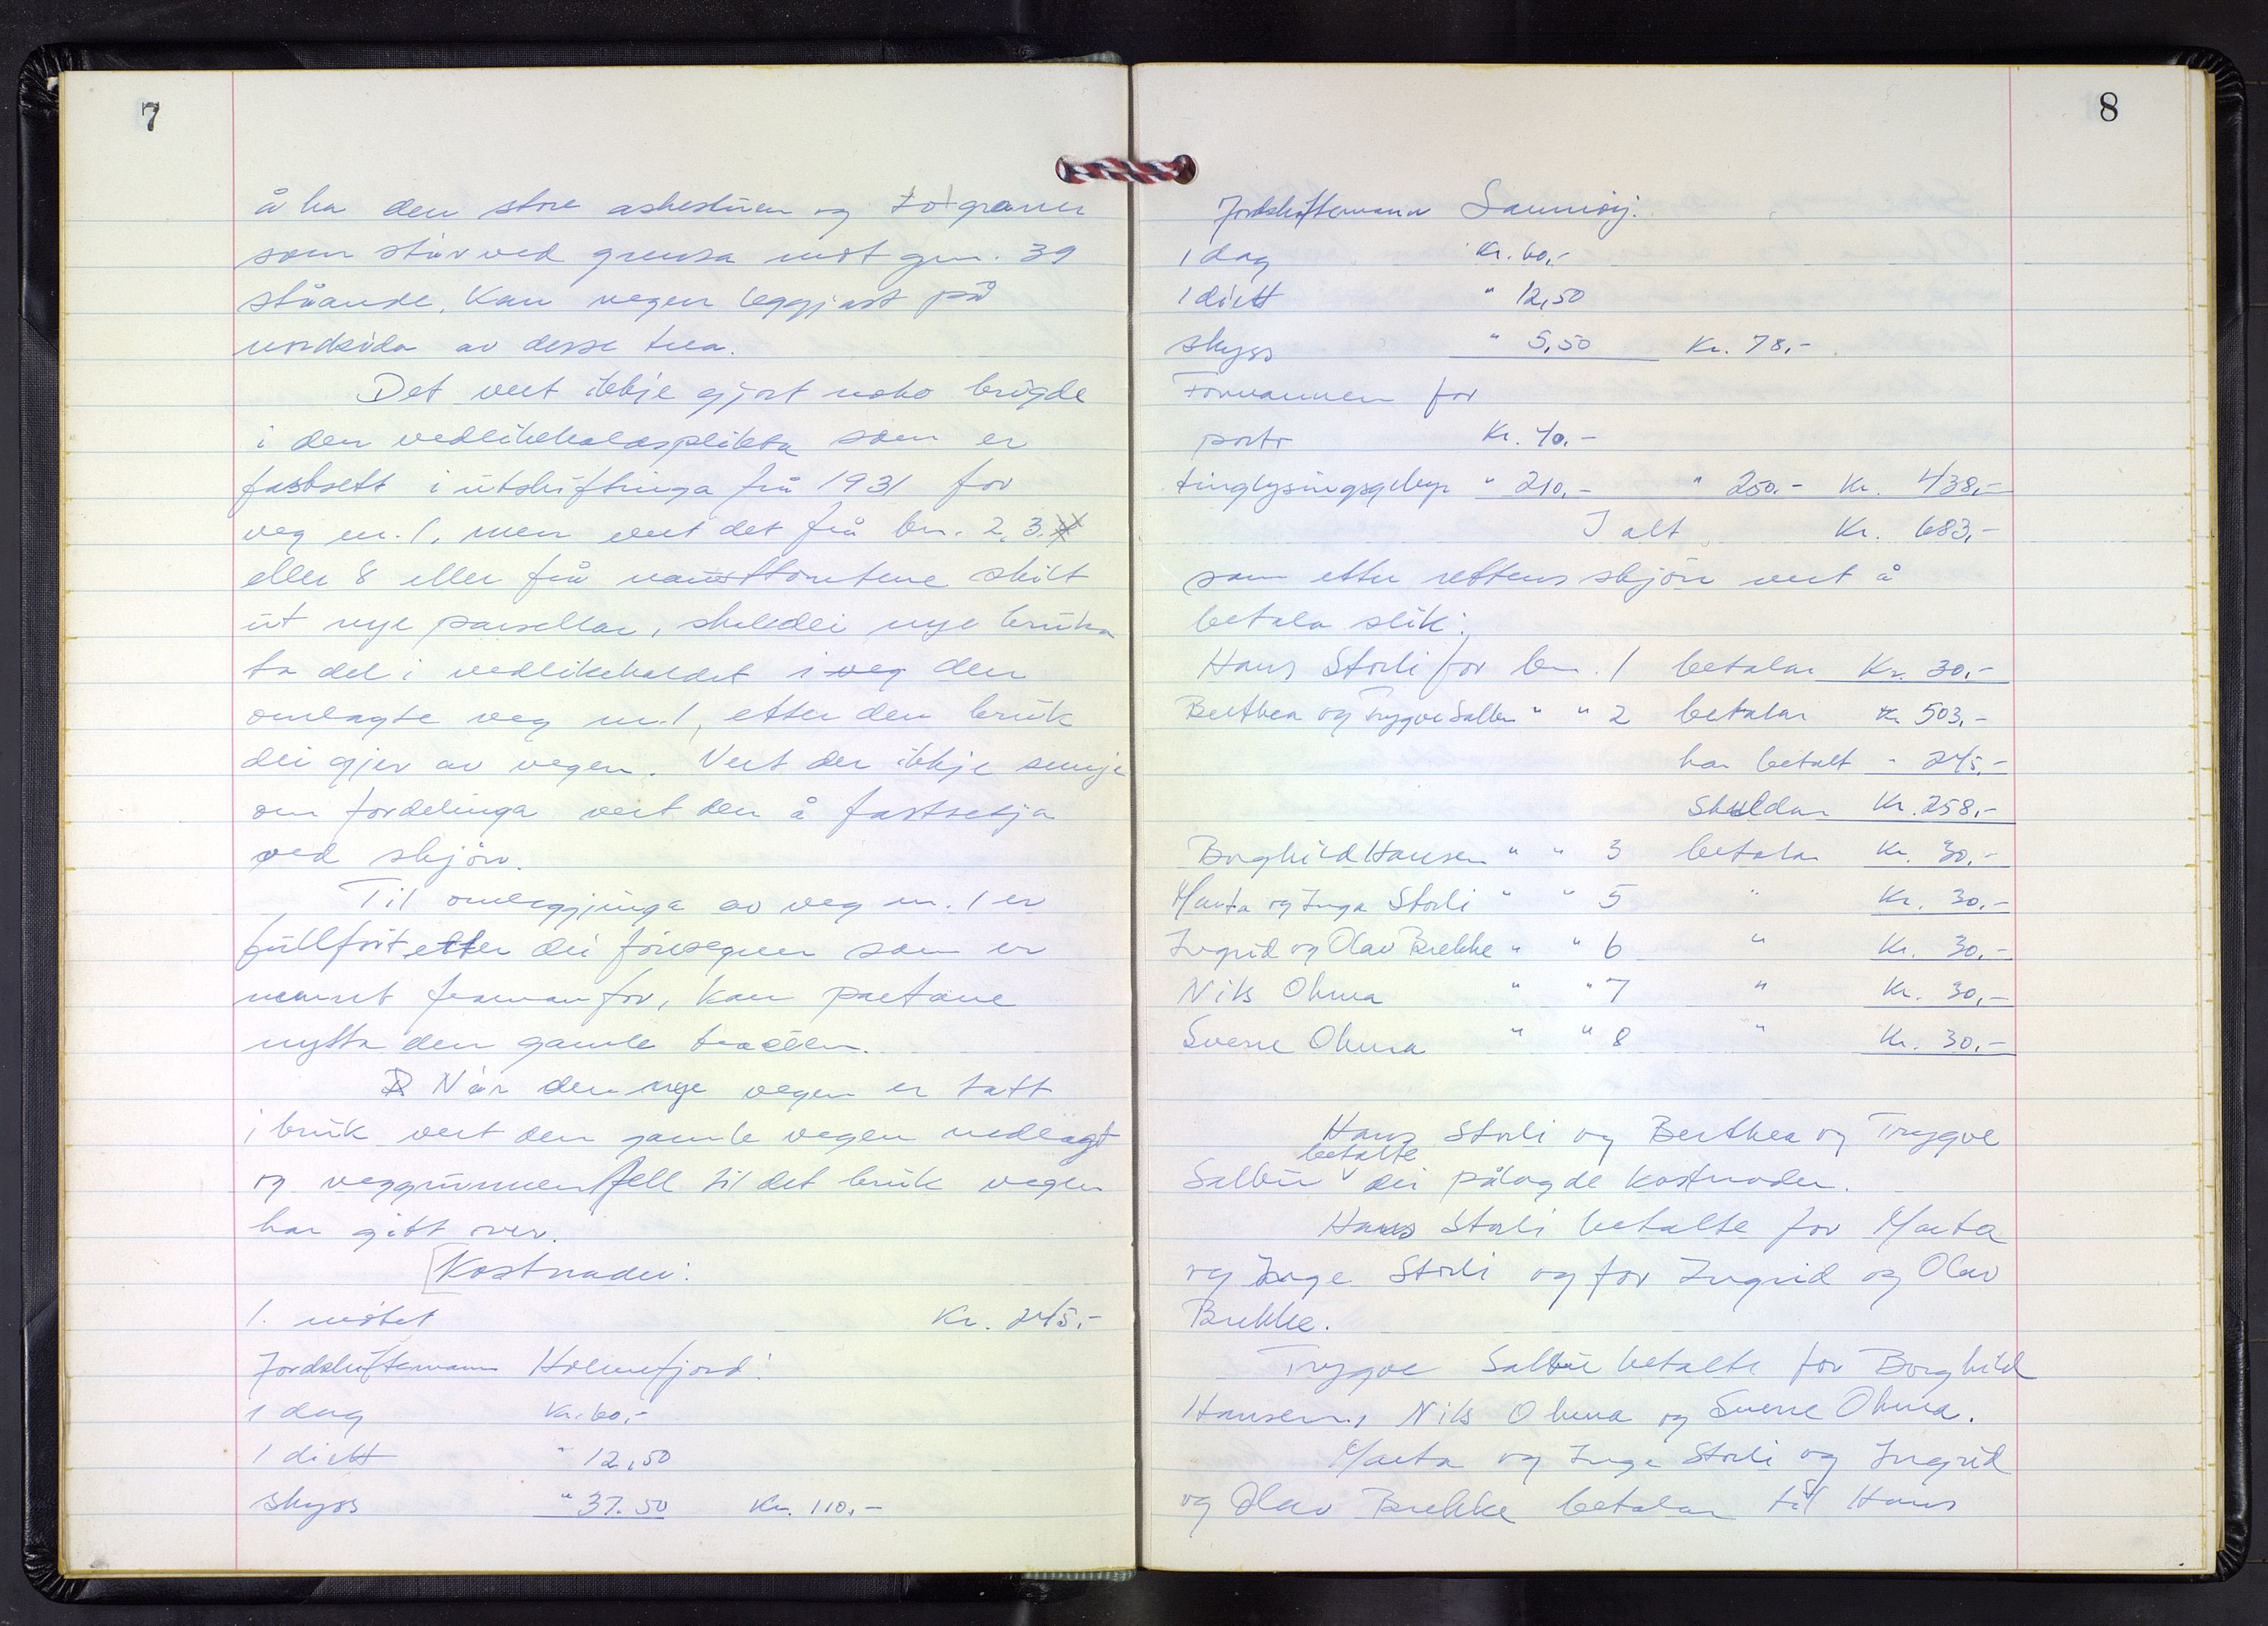 7
å ha den store askestuven og to graner
som står ved grensa mot gnr. 39
ståande, kan vegen leggjast på
nordsida av desse trea.
Det vert ikkje gjort noko brigde
i den vedlikehaldsplikta som er
fastsett i utskiftinga frå 1931 for
veg nr. 1, men vert det frå bn. 2, 3,
eller 8 eller frå nausttomtene skilt
ut nye parsellar, skal dei nye bruka
ta del i vedlikehaldet i veg den
omlagte veg nr. 1, etter den bruk
dei gjer av vegen. Vert der ikkje semje
om fordelinga vert den å fastsetja
ved skjøn.
Til omleggjinga av veg nr. 1 er
fullført etter dei föresegner som er
nemnt framanfor, kan partane
nytta den gamle traseen.
Når den nye vegen er tatt
i bruk vert den gamle vegen nedlagt
og veggrunnen fell til det bruk vegen
har gått over.
Kostnader:
1. møtet Kr. 245.-
Jordskiftemann Holmefjord:
1 dag Kr. 60,-
1 diett " 12,50
skyss " 37.50 Kr. 110,-
8
Jordskiftemann Samnøy:
1 dag Kr. 60,-
1 diett " 12,50
skyss " 5,50 Kr. 78,-
Formannen for
porto Kr. 40.-
tinglysingsgebyr " 210,- " 250.- Kr. 438,-
I alt Kr. 683,-
som etter rettens skjön vert å
betala slik:
Hans Storli for bn. 1 betalar Kr. 30.-
Berthea og Trygve Salbu " " 2 betalar Kr 503,-
har betalt - 245.-
skuldar Kr. 258,-
Borghild Hansen " " 3 betalar Kr. 30,-
Marta og Inga Storli " " 5 " Kr. 30.-
Ingrid og Olav Brekke " " 6 " Kr. 30.-
Nils Ohma " " 7 " Kr. 30,-
Sverre Ohma " " 8 " Kr. 30,-
Hans Storli og Berthea og Trygve
betalte
Salbu dei pålagde kostnader.
Hans Storli betalte for Marta
og Inge Storli og for Ingrid og Olav
Brekke.
Trygve Salbu betalte for Borghild
Hansen, Nils Ohma og Sverre Ohma.
Marta og Inge Storli og Ingrid
og Olav Brekke betalar til Hans